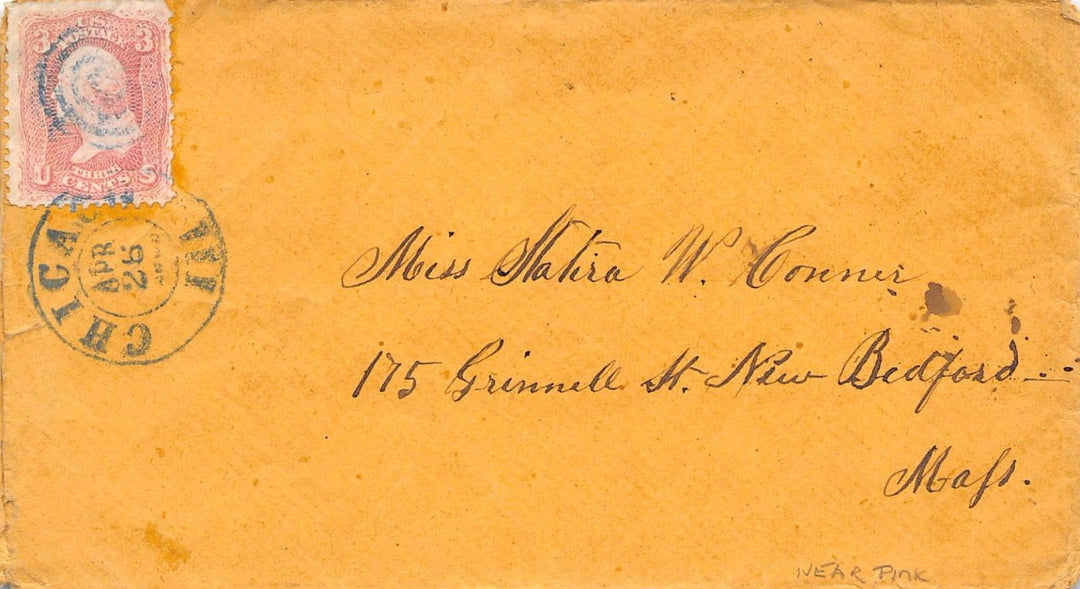 3 U.S. 3
POSTAGE
U S
THREE
CENTS
CHICAGO ILL
APR
26
Miss Statira W. Conner
175 Grinnell St. New Bedford
Maſs.
NEAR PINK